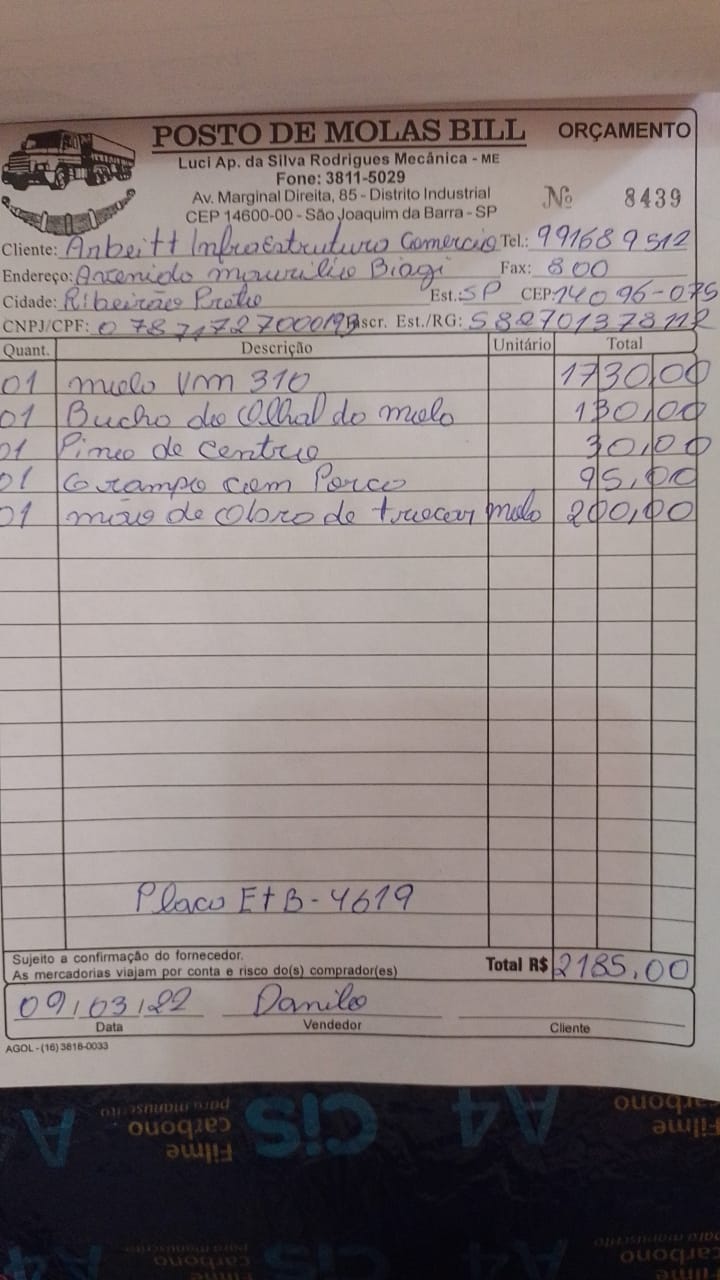 POSTO DE MOLAS BILL ORÇAMENTO
Luci Ap. da Silva Rodrigues Mecânica - ME
Fone: 3811-5029
Av. Marginal Direita, 85 - Distrito Industrial
CEP 14600-00 - São Joaquim da Barra - SP
Nº 8439
Cliente: Anbeitt Infraestrutura Comercio Tel.: 991689512
Endereço: Avenida Maurilio Biagi Fax: 800
Cidade: Ribeirão Preto Est.: SP CEP: 14096-075
CNPJ/CPF: 07871727000193 Inscr. Est./RG: 582701378112
Quant. Descrição Unitário Total
01 mola Vm 310 1730,00
01 Bucha de Olhal da mola 130,00
01 Pino de Centro 30,00
01 Grampo com Porca 95,00
01 mão de Obra de trocar mola 200,00
Placa EtB-4619
Sujeito a confirmação do fornecedor.
As mercadorias viajam por conta e risco do(s) comprador(es) Total R$ 2185,00
09/03/22 Danilo
Data Vendedor Cliente
AGOL - (16) 3818-0033
A4 Filme carbono para manuscrito
CiS